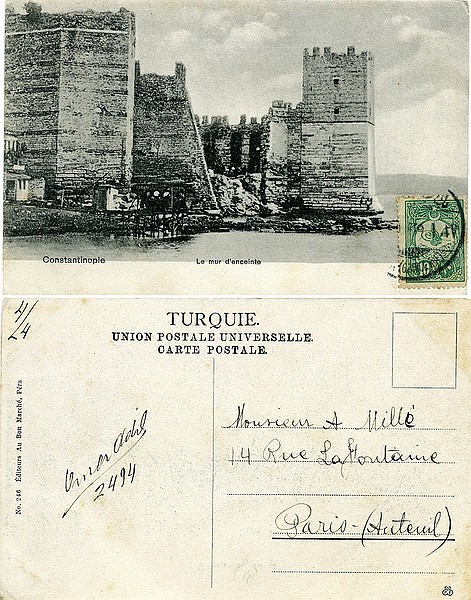 Constantinople
Le mur d'enceinte
10
4/4
TURQUIE.
UNION POSTALE UNIVERSELLE.
CARTE POSTALE.
No. 246 Éditeurs Au Bon Marché, Péra
Omer Adil
2494
Monsieur A Millé
14 Rue La Fontaine
Paris-(Auteuil)